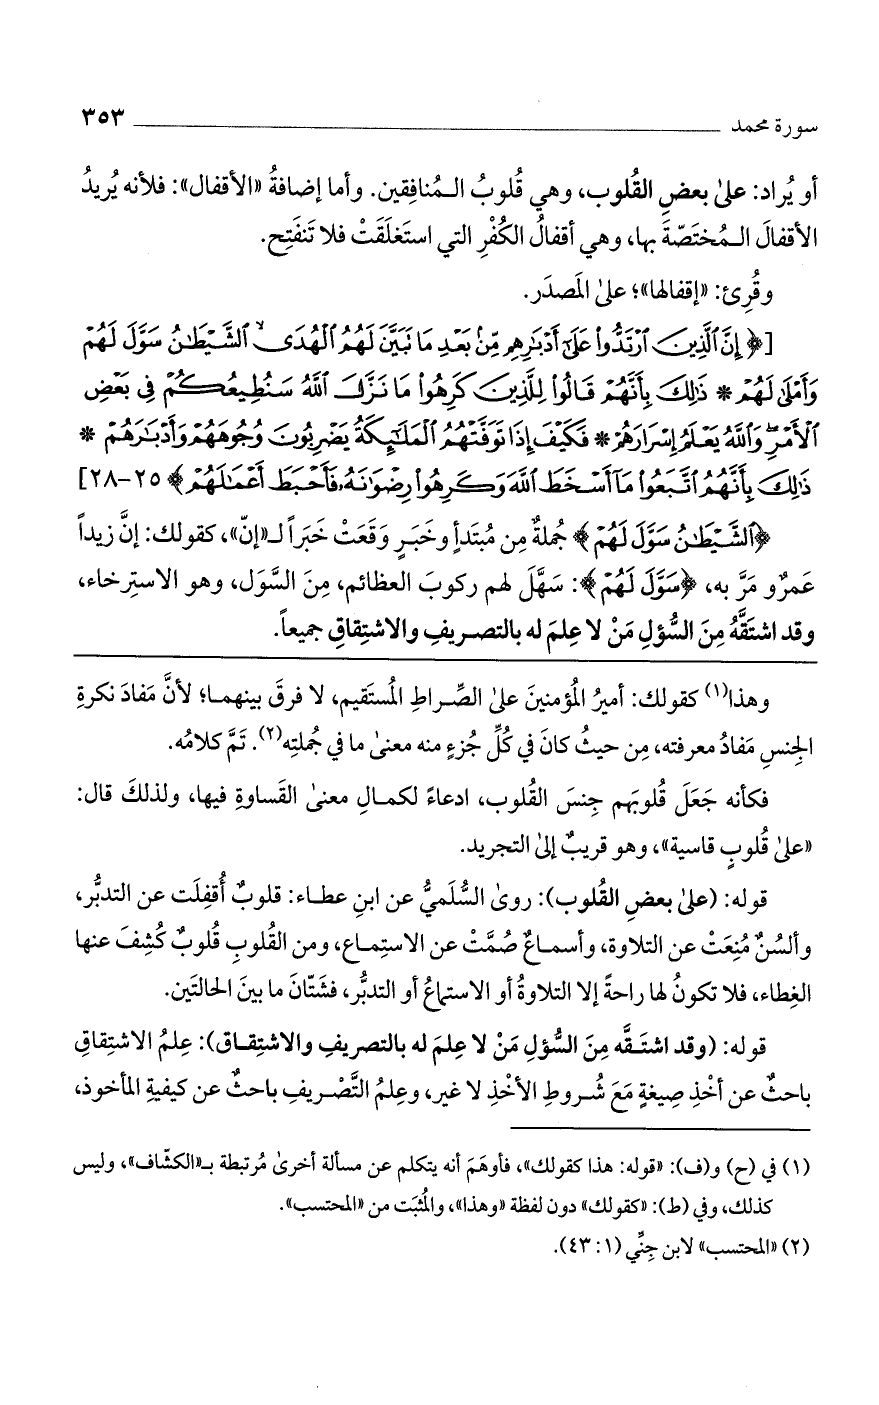 سورة محمد ٣٥٣
أو يُراد: علىٰ بعضِ القُلوب، وهي قُلوبُ الـمُنافِقين. وأما إضافةُ «الأقفال»: فلأنه يُريدُ
الأقفالَ الـمُختَصّةَ بها، وهي أقفالُ الكُفْرِ التي استَغلَقَتْ فلا تَنفَتِح.
وقُرِئ: «إقفالها»؛ علىٰ المَصدَر.
[﴿إِنَّ ٱلَّذِينَ ٱرْتَدُّوا۟ عَلَىٰٓ أَدْبَـٰرِهِم مِّنۢ بَعْدِ مَا تَبَيَّنَ لَهُمُ ٱلْهُدَى ۙ ٱلشَّيْطَـٰنُ سَوَّلَ لَهُمْ
وَأَمْلَىٰ لَهُمْ * ذَٰلِكَ بِأَنَّهُمْ قَالُوا۟ لِلَّذِينَ كَرِهُوا۟ مَا نَزَّلَ ٱللَّهُ سَنُطِيعُكُمْ فِى بَعْضِ
ٱلْأَمْرِ ۖ وَٱللَّهُ يَعْلَمُ إِسْرَارَهُمْ * فَكَيْفَ إِذَا تَوَفَّتْهُمُ ٱلْمَلَـٰٓئِكَةُ يَضْرِبُونَ وُجُوهَهُمْ وَأَدْبَـٰرَهُمْ *
ذَٰلِكَ بِأَنَّهُمُ ٱتَّبَعُوا۟ مَآ أَسْخَطَ ٱللَّهَ وَكَرِهُوا۟ رِضْوَٰنَهُۥ فَأَحْبَطَ أَعْمَـٰلَهُمْ﴾ ٢٥-٢٨]
﴿ٱلشَّيْطَـٰنُ سَوَّلَ لَهُمْ﴾ جُملةٌ مِن مُبتَدأٍ وخَبَرٍ وَقَعَتْ خَبَراً لـ«إنّ»، كقولك: إنَّ زيداً
عَمرٌو مَرَّ به، ﴿سَوَّلَ لَهُمْ﴾: سَهَّلَ لهم ركوبَ العظائم، مِنَ السَّوَل، وهو الاسترخاء،
وقد اشتَقَّهُ مِنَ السُّؤلِ مَنْ لا عِلمَ له بالتصريفِ والاشتِقاقِ جميعاً.
وهذا(١) كقولك: أميرُ المُؤمنينَ علىٰ الصِّراطِ المُستَقيم، لا فرقَ بينهما؛ لأنَّ مَفادَ نكرةِ
الجِنسِ مَفادُ معرفته، مِن حيثُ كانَ في كُلِّ جُزءٍ منه معنىٰ ما في جُملتِه(٢). تَمَّ كلامُه.
فكأنه جَعَلَ قُلوبَهم جِنسَ القُلوب، ادعاءً لكمالِ معنىٰ القَساوةِ فيها، ولذلكَ قال:
«علىٰ قُلوبٍ قاسية»، وهو قريبٌ إلىٰ التجريد.
قوله: (علىٰ بعضِ القُلوب): روىٰ السُّلَميُّ عن ابنِ عطاء: قلوبٌ أُقفِلَت عن التدبُّر،
وألسُنٌ مُنِعَتْ عن التلاوة، وأسماعٌ صُمَّتْ عن الاستِماع، ومن القُلوبِ قُلوبٌ كُشِفَ عنها
الغِطاء، فلا تكونُ لها راحةً إلا التلاوةُ أو الاستماعُ أو التدبُّر، فشَتّانَ ما بينَ الحالتَين.
قوله: (وقد اشتَقَّه مِنَ السُّؤلِ مَنْ لا عِلمَ له بالتصريفِ والاشتِقاق): عِلمُ الاشتِقاقِ
باحثٌ عن أخْذِ صِيغةٍ مَعَ شُروطِ الأخْذِ لا غير، وعِلمُ التَّصْريفِ باحثٌ عن كيفيةِ المأخوذ،
(١) في (ح) و(ف): «قوله: هذا كقولك»، فأوهَمَ أنه يتكلم عن مسألة أخرىٰ مُرتبطة بـ«الكشّاف»، وليس
كذلك، وفي (ط): «كقولك» دون لفظة «وهذا»، والمُثبَت من «المحتسب».
(٢) «المحتسب» لابن جِنِّي (١: ٤٣).